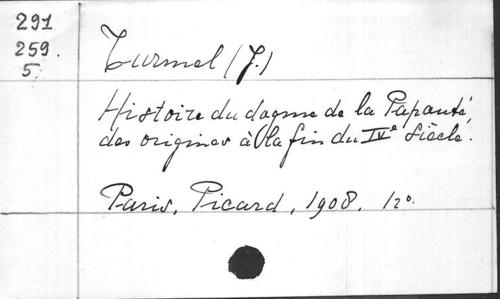 291
259.
5.
Turmel (J.)
Histoire du dogme de la Papauté,
des origines à la fin du IVe Siècle.
Paris, Picard, 1908. 12o.